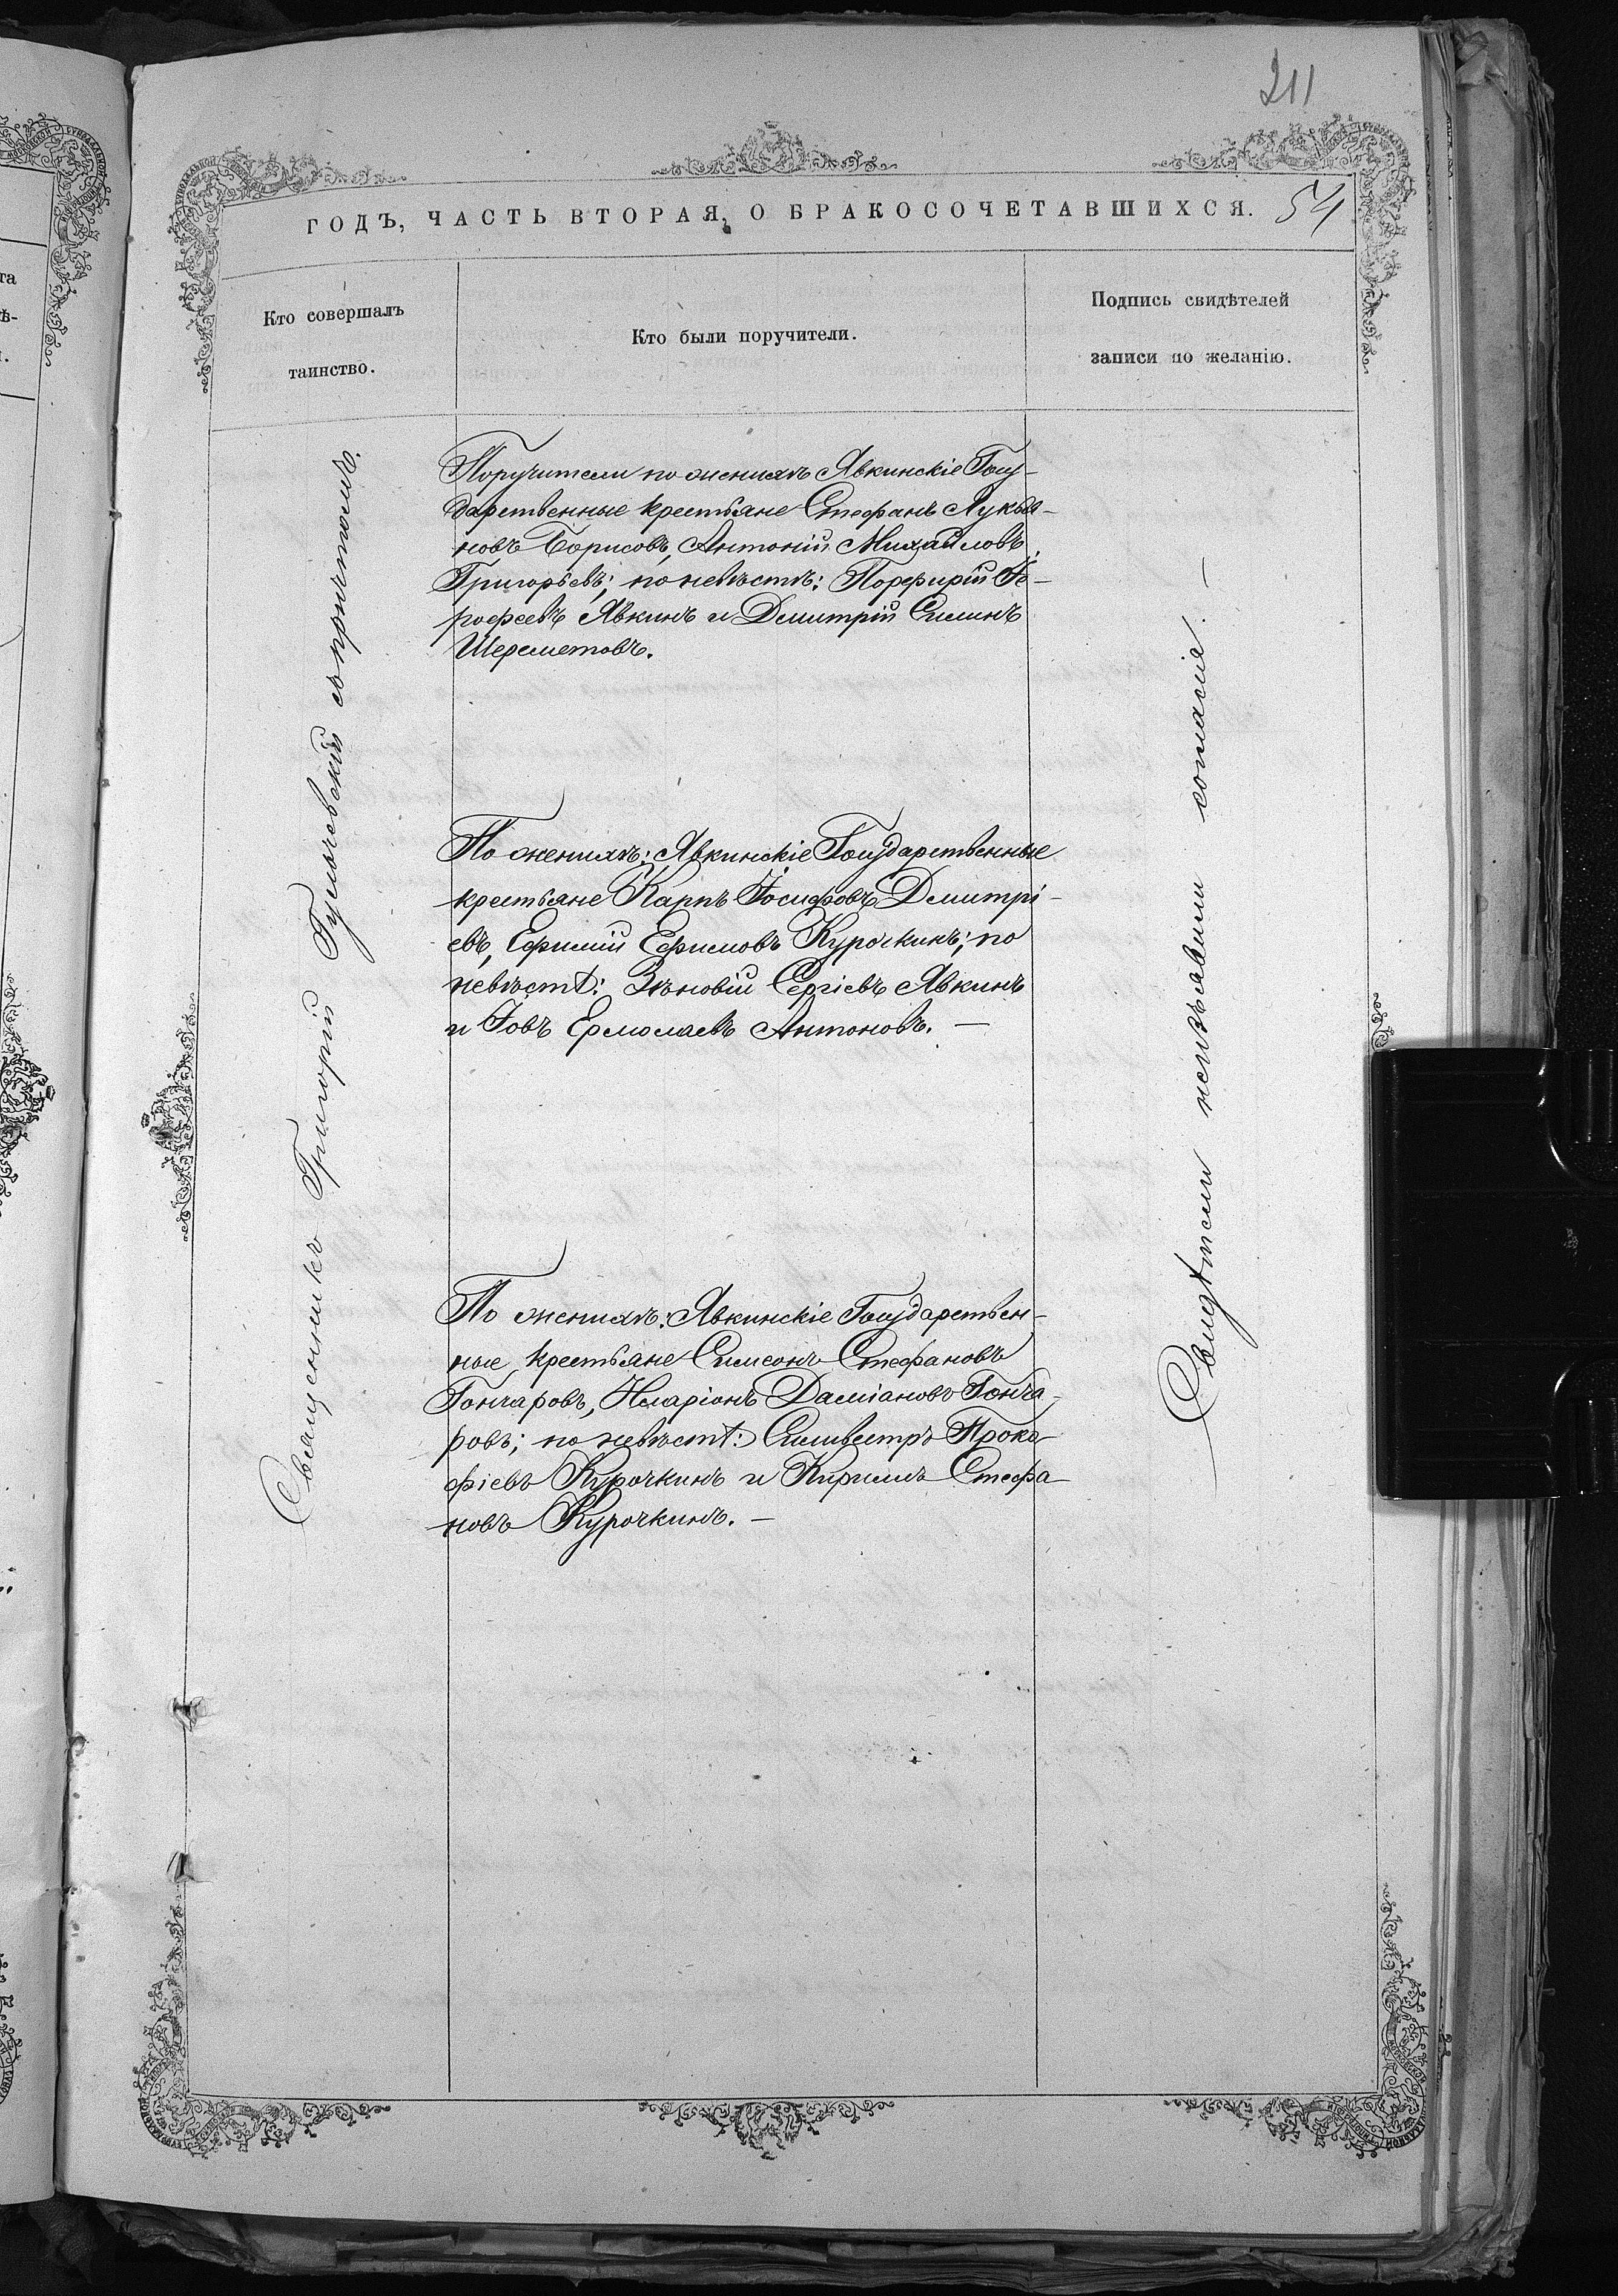 211
ГОДЪ, ЧАСТЬ ВТОРАЯ, О БРАКОСОЧЕТАВШИХСЯ. 54
Кто совершалъ
таинство.
Кто были поручители.
Подпись свидѣтелей
записи по желанію.
Священникъ Григорій Гульчевскій съ причтомъ.
Поручители по женихѣ Явкинскіе Госу-
дарственные крестьяне Стефанъ Лукья-
новъ Борисовъ, Антоній Михайловъ
Григорьевъ; по невѣстѣ: Порфирій Іе-
рофеевъ Явкинъ и Димитрій Силинъ
Шереметовъ.
По женихѣ: Явкинскіе Государственные
крестьяне Карпъ Іосифовъ Дмитрі-
евъ, Ефимій Ефимовъ Курочкинъ; по
невѣстѣ: Зѣновій Сергіевъ Явкинъ
и Іовъ Ермолаевъ Антоновъ. —
По женихѣ: Явкинскіе Государствен-
ные крестьяне Симеонъ Стефановъ
Гончаровъ, Иларіонъ Даміановъ Гонча-
ровъ; по невѣстѣ: Сильвестръ Проко-
фіевъ Курочкинъ и Кириллъ Стефа-
новъ Курочкинъ. —
Свидѣтели неизъявили согласія. —